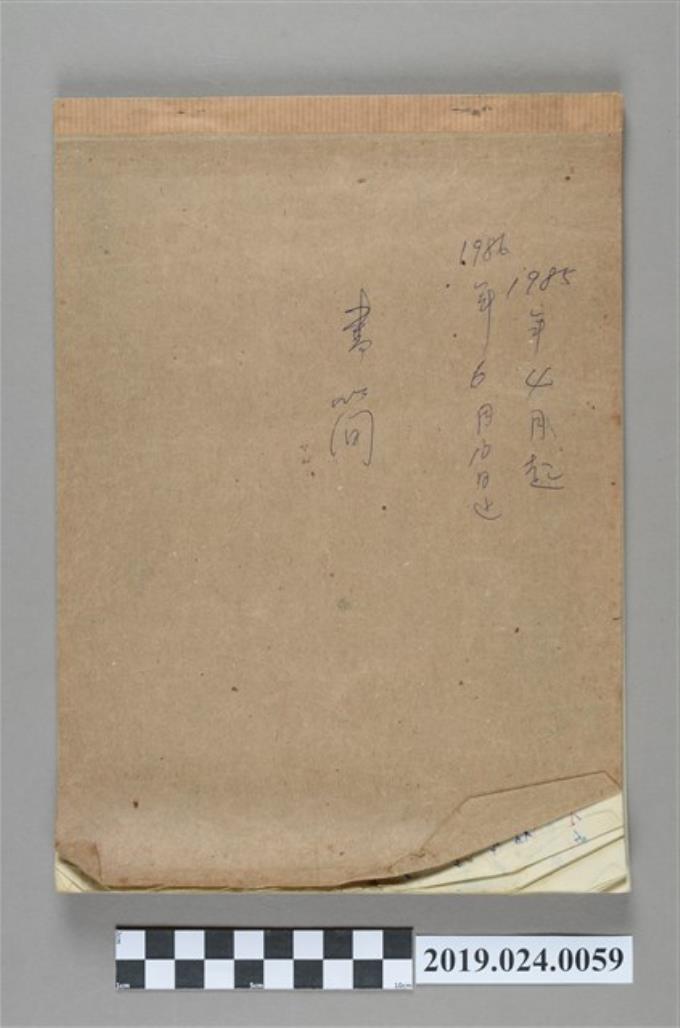 1985年4月起
1986年6月10日止
書簡
2019.024.0059
1cm
5cm
10cm